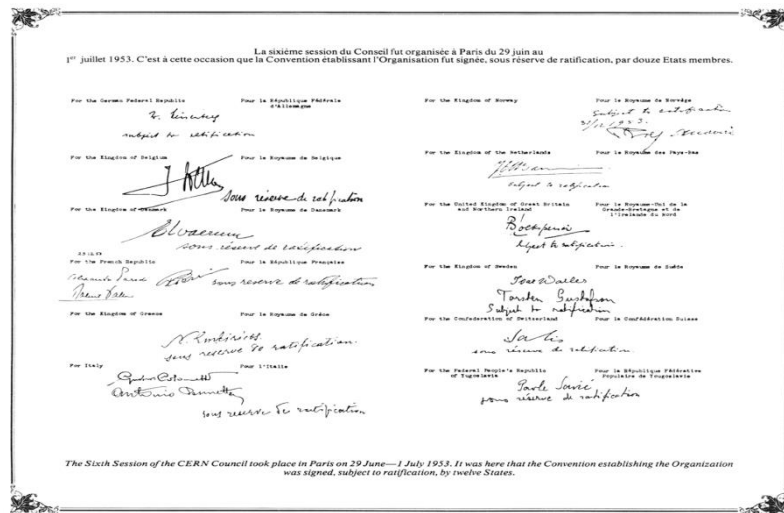 La sixième session du Conseil fut organisée à Paris du 29 juin au
1er juillet 1953. C'est à cette occasion que la Convention établissant l'Organisation fut signée, sous réserve de ratification, par douze Etats membres.
For the German Federal Republic Pour la République Fédérale
d'Allemagne
subject to ratification
For the Kingdom of Belgium Pour le Royaume de Belgique
sous réserve de ratification
For the Kingdom of Denmark Pour le Royaume de Danemark
sous réserve de ratification
For the French Republic Pour la République Française
sous reserve de ratification
For the Kingdom of Greece Pour le Royaume de Grèce
sous reserve de ratification.
For Italy Pour l'Italie
Gustavo Colonnetti
Antonio Pennetta
sous reserve de ratification
For the Kingdom of Norway Pour le Royaume de Norvège
Subject to ratification
31/12 1953.
For the Kingdom of the Netherlands Pour le Royaume des Pays-Bas
subject to ratification
For the United Kingdom of Great Britain Pour le Royaume-Uni de la
and Northern Ireland Grande-Bretagne et de
l'Irlande du Nord
subject to ratification.
For the Kingdom of Sweden Pour le Royaume de Suède
Torsten Gustafson
Subject to ratification
For the Confederation of Switzerland Pour la Confédération Suisse
Salis
sous réserve de ratification.
For the Federal People's Republic Pour la République Fédérative
of Yugoslavia Populaire de Yougoslavie
Pavle Savić
sous réserve de ratification
The Sixth Session of the CERN Council took place in Paris on 29 June—1 July 1953. It was here that the Convention establishing the Organization
was signed, subject to ratification, by twelve States.